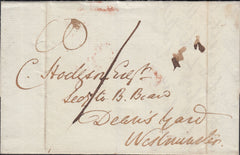 C. Hodgson Esqr.
Secy to B. Board
Deans Yard
Westminster